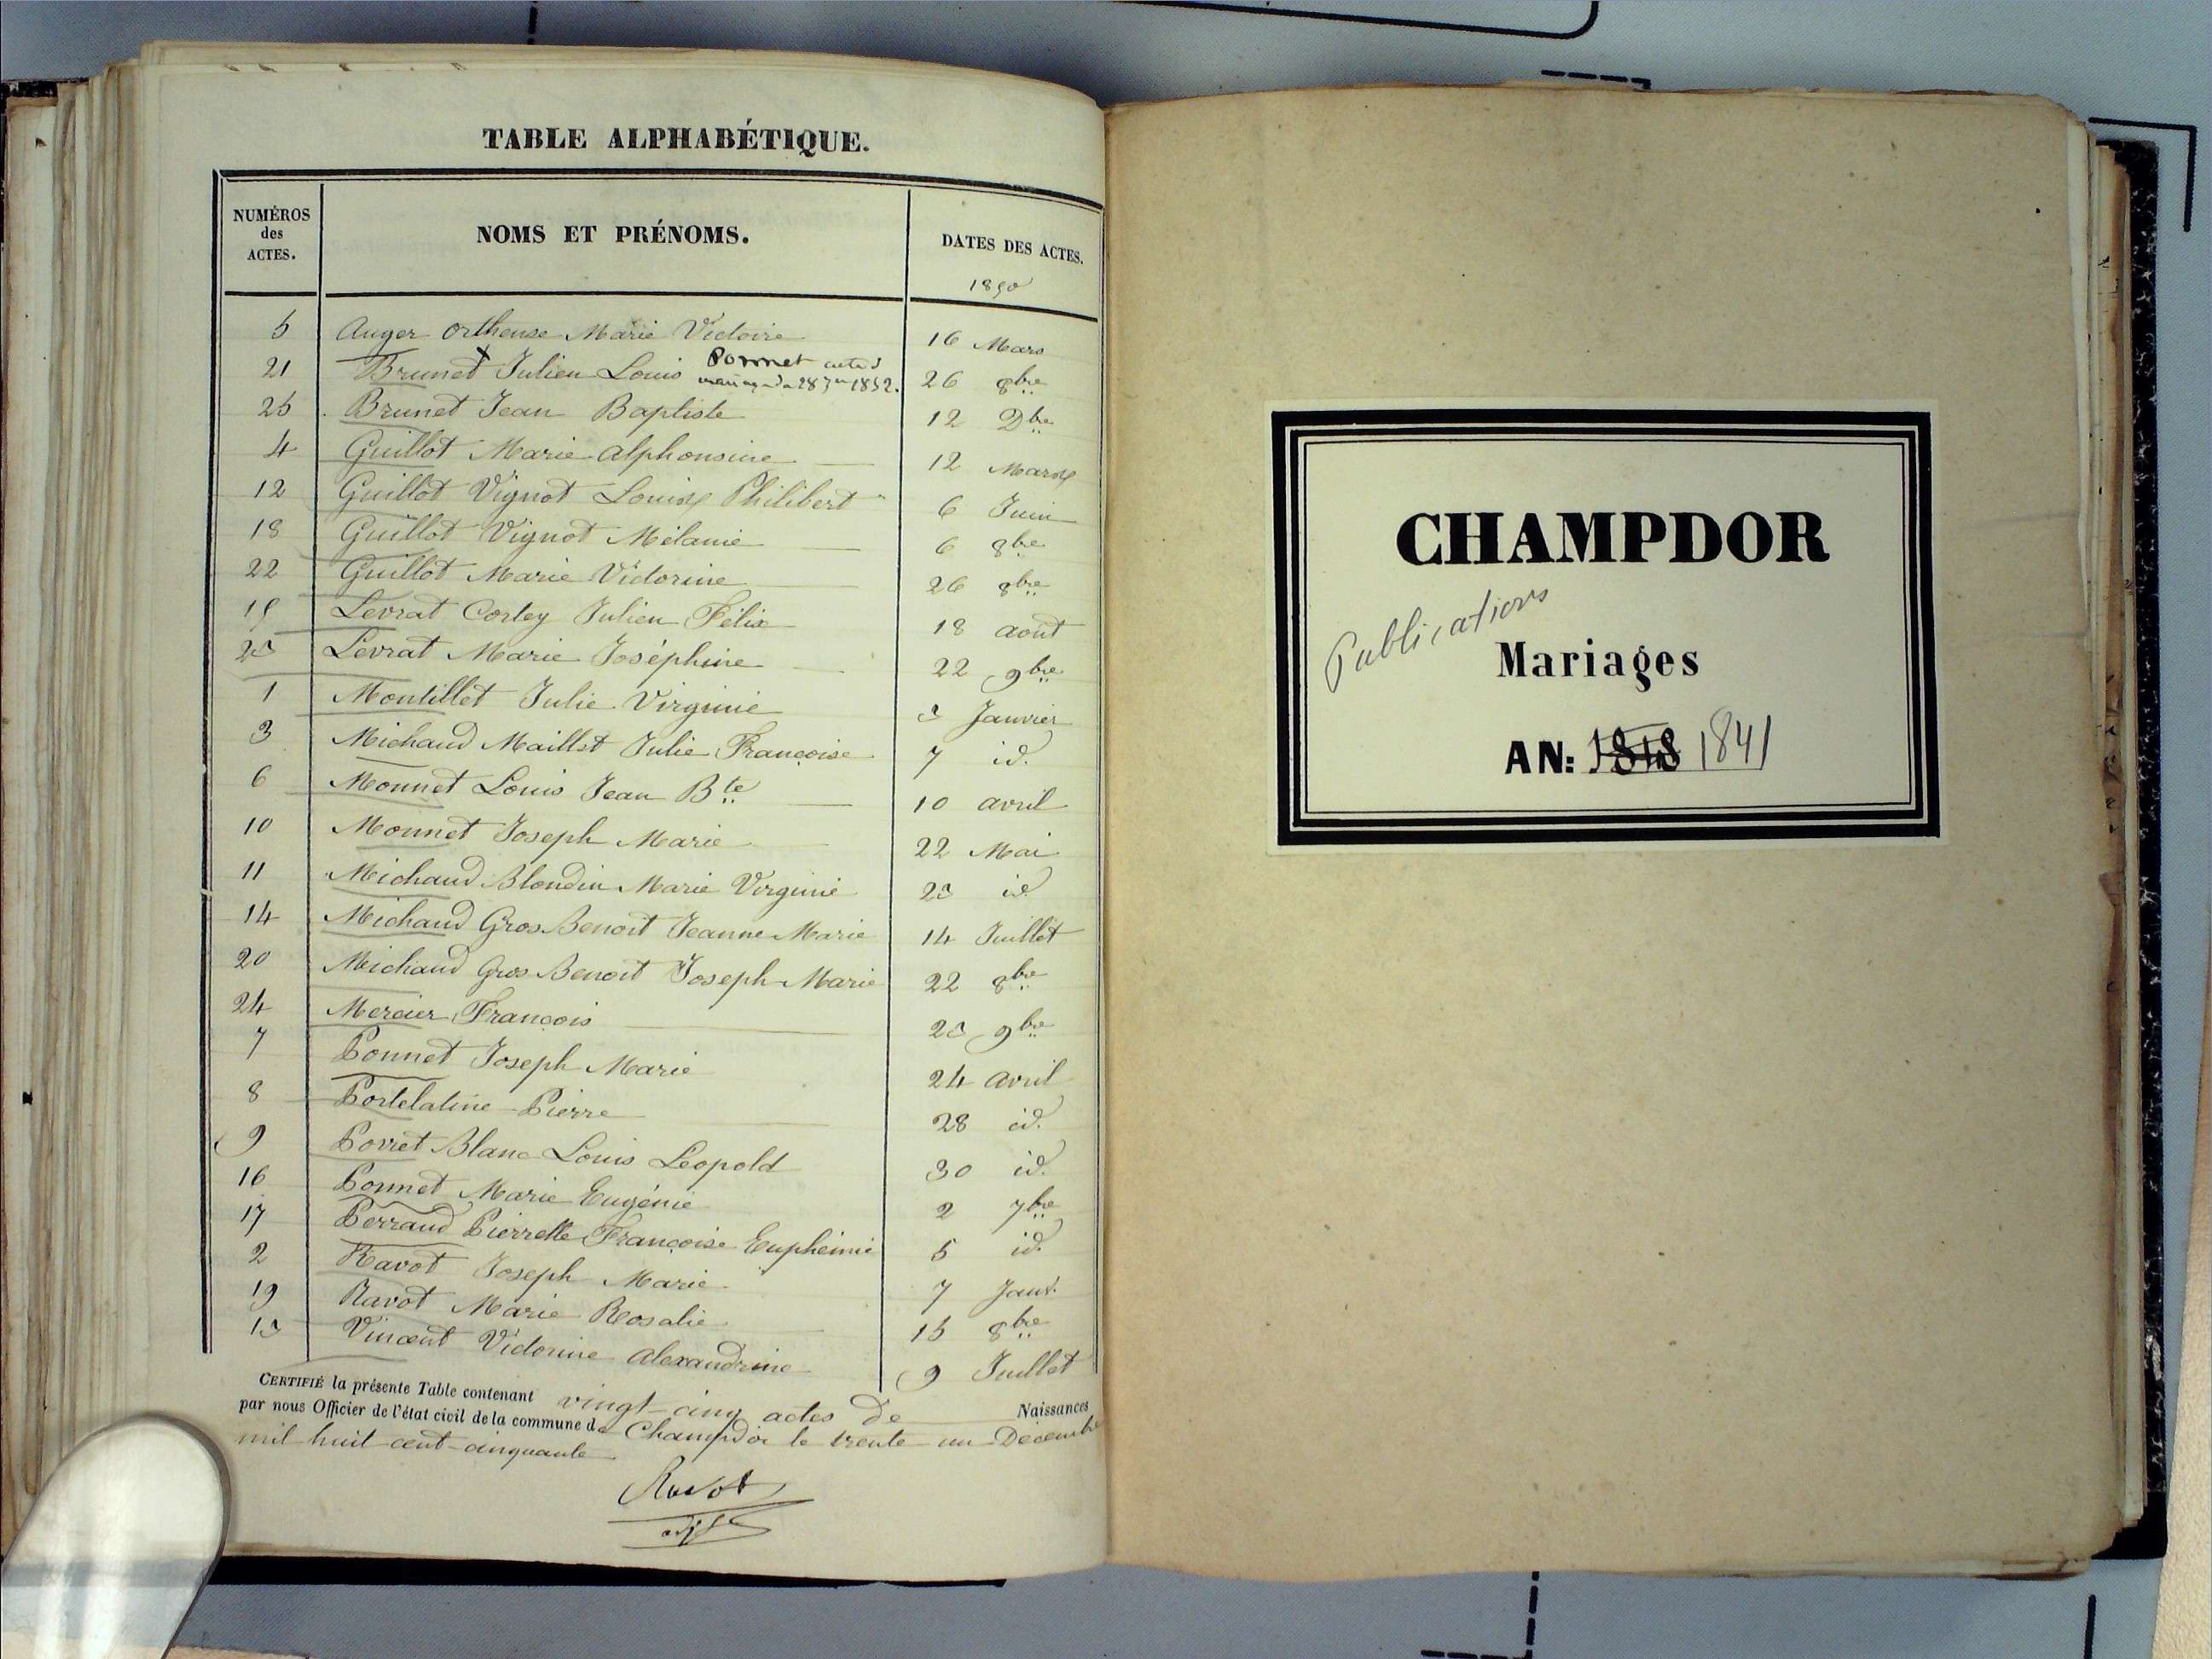 TABLE ALPHABÉTIQUE.
NUMÉROS des ACTES. NOMS ET PRÉNOMS. DATES DES ACTES.
1850
5 Auger Orthense Marie Victoire 16 Mars
21 Brunet Julien Louis Ponnet acte d 26 8bre
mariage du 28 1852.
25 Brunet Jean Baptiste 12 Dbre
4 Guillot Marie Alphonsine 12 Mars
12 Guillot Vignot Louis Philibert 6 Juin
18 Guillot Vignot Mélanie 6 8bre
22 Guillot Marie Victorine 26 8bre
15 Levrat Corley Julien Félix 18 août
23 Levrat Marie Joséphine 22 9bre
1 Montillet Julie Virginie 3 Janvier
3 Michaud Maillet Julie Françoise 7 id.
6 Monnet Louis Jean Bte 10 avril
10 Monnet Joseph Marie 22 Mai
11 Michaud Blondin Marie Virginie 23 id
14 Michaud Gros Benoit Jeanne Marie 14 Juillet
20 Michaud Gros Benoit Joseph Marie 22 8bre
24 Mercier François 23 9bre
7 Ponnet Joseph Marie 24 avril
8 Portelatine Pierre 28 id.
9 Porret Blanc Louis Leopold 30 id.
16 Ponnet Marie Eugénie 2 7bre
17 Perraud Pierrette Françoise Eupheimie 5 id.
2 Ravot Joseph Marie 7 Janv.
19 Ravot Marie Rosalie 15 8bre
13 Vincent Victorine Alexandrine 9 Juillet
CERTIFIÉ la présente Table contenant vingt-cinq actes de Naissances
par nous Officier de l'état civil de la commune de Champdor le trente-un Décembre
mil huit cent cinquante
Ravot
adjt
CHAMPDOR
Publications
Mariages
AN: 1848 1841